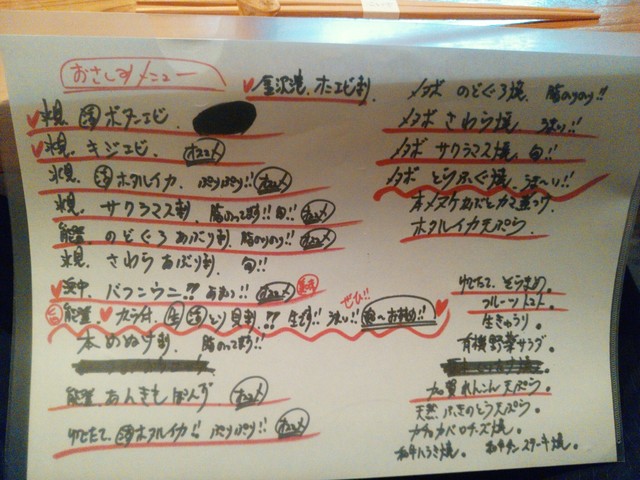 おさしみメニュー
金沢港、オニエビ刺、
氷見、活ボタンエビ、
氷見、キジエビ、オススメ
氷見、活ホタルイカ、ぷりぷり!!オススメ
氷見、サクラマス刺、脂のってます!!旬!!オススメ
能登、のどぐろあぶり刺、脂のりのり!!オススメ
氷見、さわらあぶり刺、旬!!
浜中、バフンウニ!?あまい!!オススメ
ぜひ!!
能登、カラ付、生活とり貝刺、!?生です!!凄い!!超〜お勧め!!
本めぬけ刺、脂のってます!!
能登、あんきもぽんず オススメ
ゆでたて、活ホタルイカ!!ぷりぷり!!オススメ
メボ のどぐろ焼、脂のりのり!!
メボ さわら焼、
メボ サクラマス焼、旬!!
メボ とらふぐ焼、凄〜い!!
本メヌケかぶとカマ煮つけ
ホタルイカ天ぷら
ゆでたて、そらまめ。
フルーツトマト
生きゅうり。
有機野菜サラダ
加賀れんこん天ぷら。
天然ふきのとう天ぷら
カチョカバロチーズ焼。
和牛ハラミ焼。 和牛タンステーキ焼。